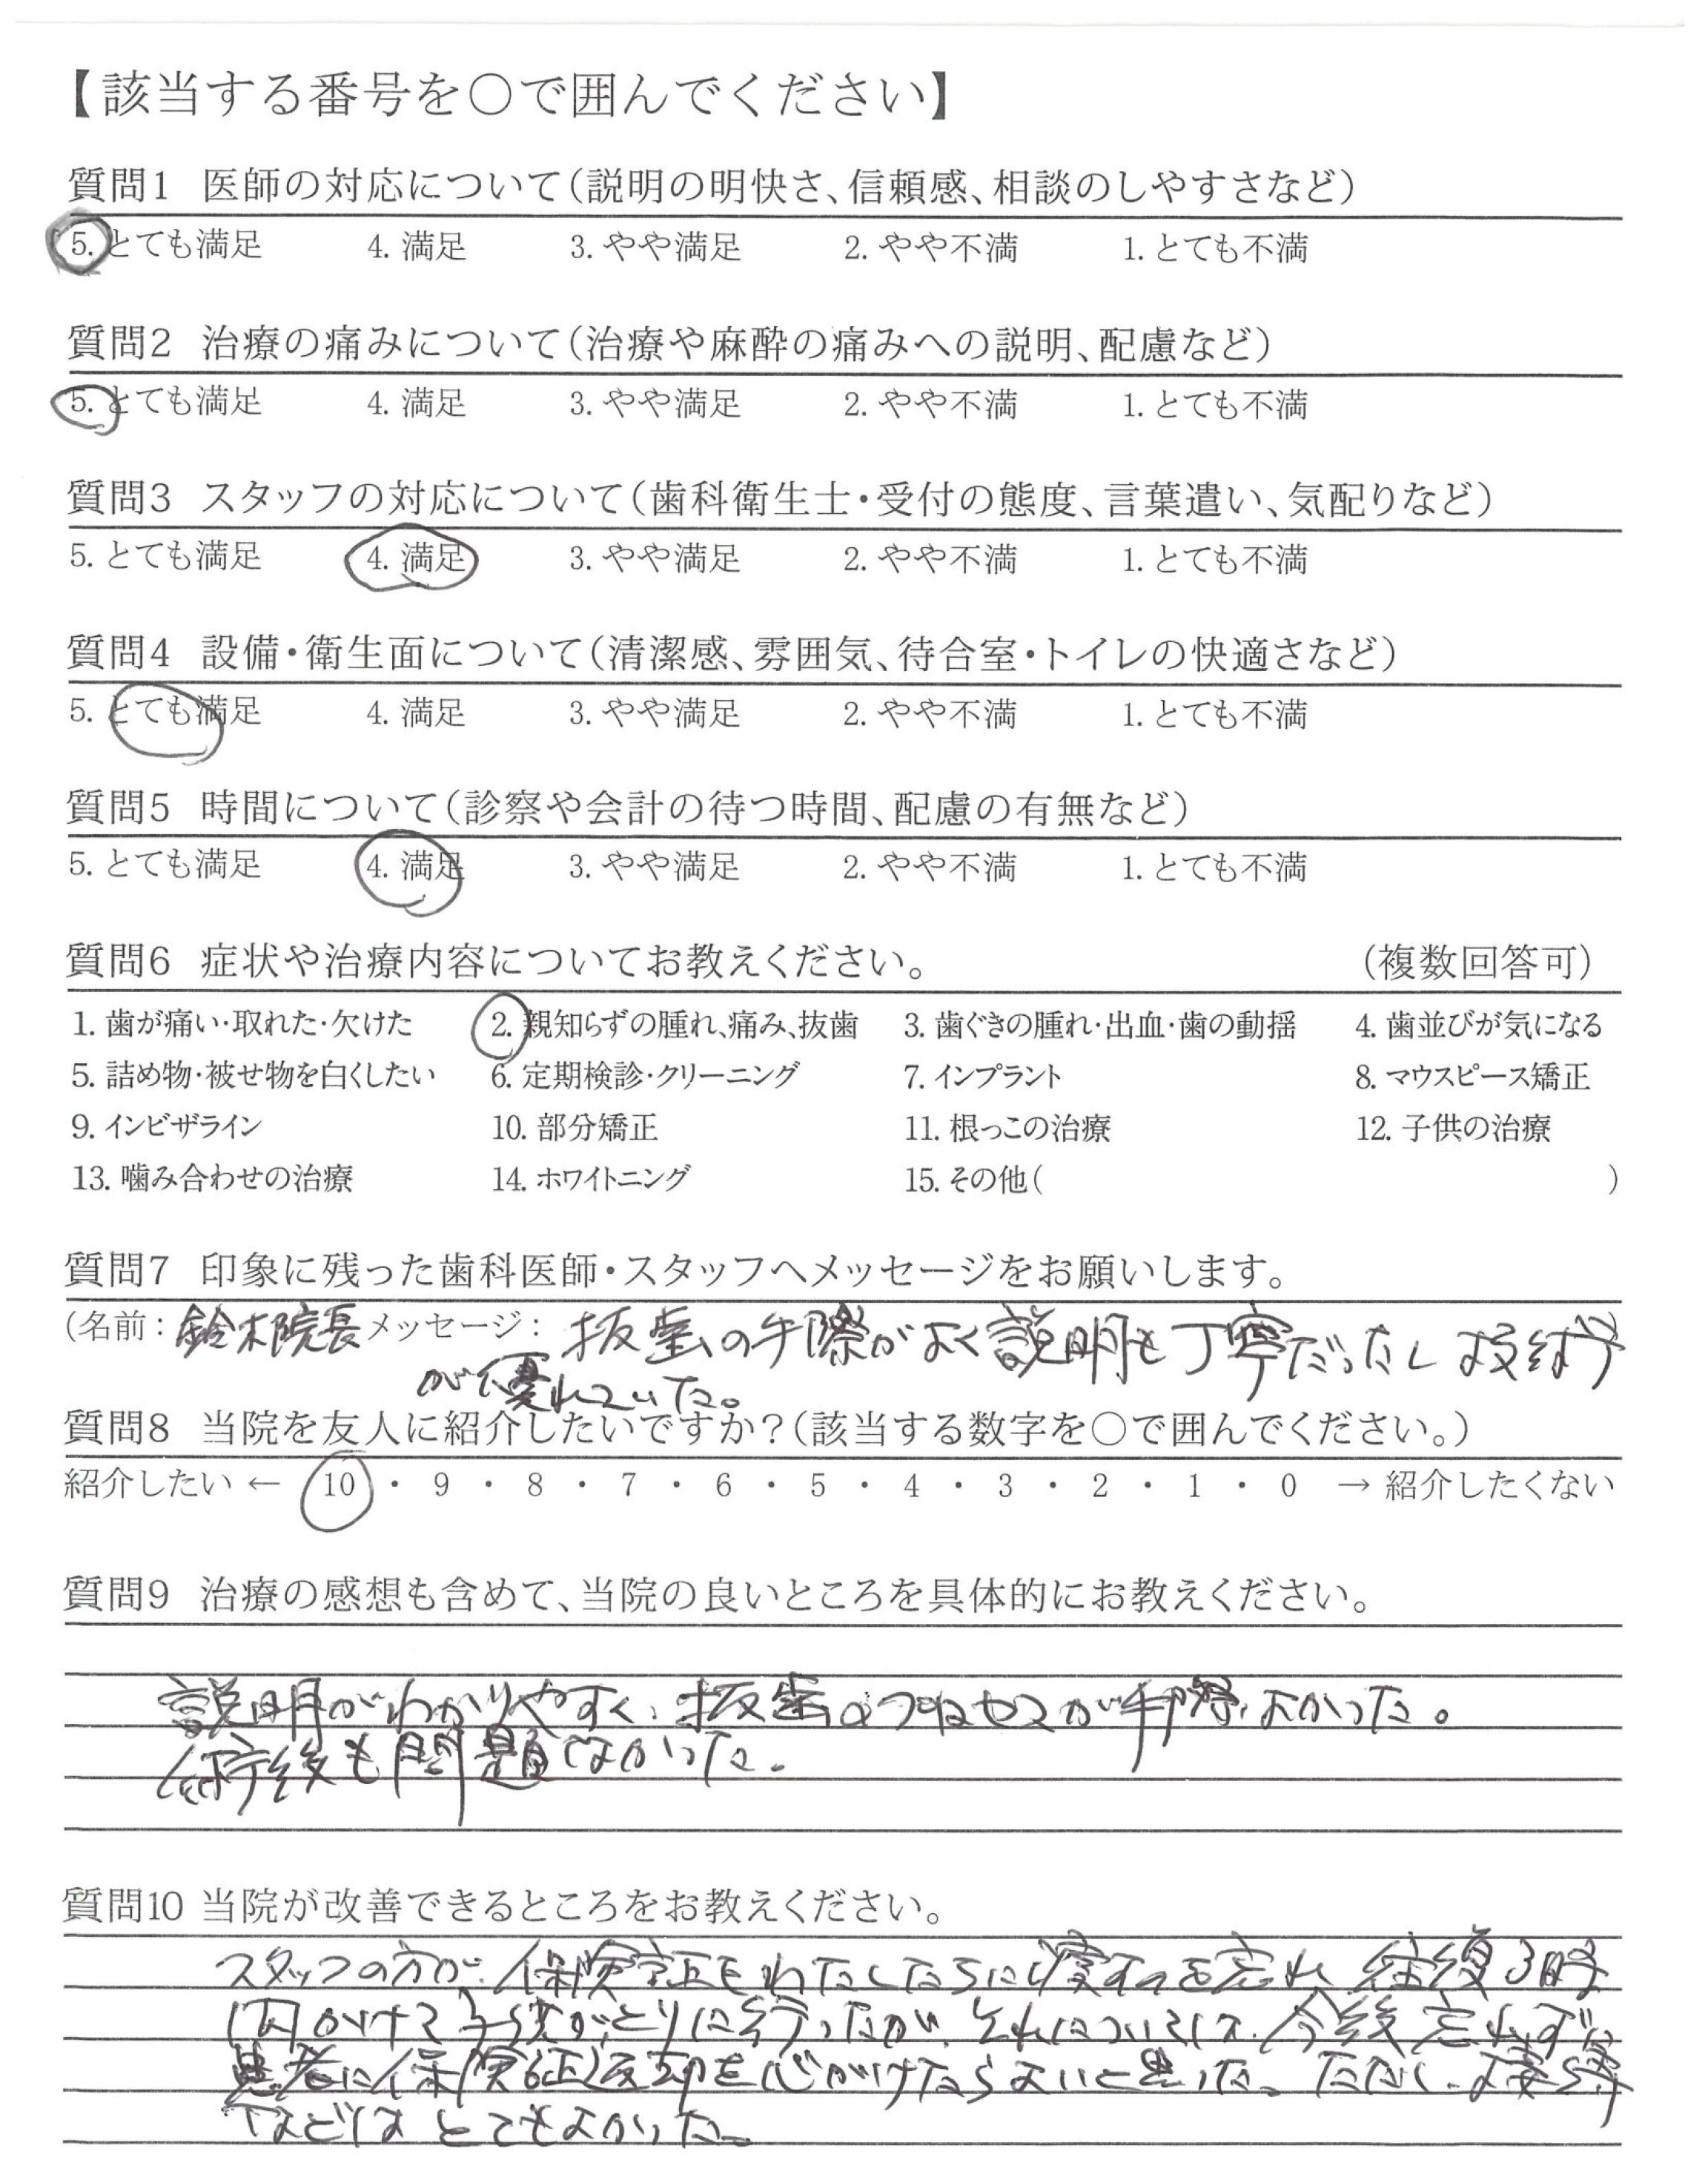 【該当する番号を○で囲んでください】
質問1 医師の対応について(説明の明快さ、信頼感、相談のしやすさなど)
5. とても満足 4. 満足 3. やや満足 2. やや不満 1. とても不満
質問2 治療の痛みについて(治療や麻酔の痛みへの説明、配慮など)
5. とても満足 4. 満足 3. やや満足 2. やや不満 1. とても不満
質問3 スタッフの対応について(歯科衛生士・受付の態度、言葉遣い、気配りなど)
5. とても満足 4. 満足 3. やや満足 2. やや不満 1. とても不満
質問4 設備・衛生面について(清潔感、雰囲気、待合室・トイレの快適さなど)
5. とても満足 4. 満足 3. やや満足 2. やや不満 1. とても不満
質問5 時間について(診察や会計の待つ時間、配慮の有無など)
5. とても満足 4. 満足 3. やや満足 2. やや不満 1. とても不満
質問6 症状や治療内容についてお教えください。 (複数回答可)
1. 歯が痛い・取れた・欠けた 2. 親知らずの腫れ、痛み、抜歯 3. 歯ぐきの腫れ・出血・歯の動揺 4. 歯並びが気になる
5. 詰め物・被せ物を白くしたい 6. 定期検診・クリーニング 7. インプラント 8. マウスピース矯正
9. インビザライン 10. 部分矯正 11. 根っこの治療 12. 子供の治療
13. 噛み合わせの治療 14. ホワイトニング 15. その他( )
質問7 印象に残った歯科医師・スタッフへメッセージをお願いします。
(名前: 鈴木院長 メッセージ: 抜歯の手際がよく説明も丁寧だったし技術)
が優れていた。
質問8 当院を友人に紹介したいですか?(該当する数字を○で囲んでください。)
紹介したい ← 10 ・ 9 ・ 8 ・ 7 ・ 6 ・ 5 ・ 4 ・ 3 ・ 2 ・ 1 ・ 0 → 紹介したくない
質問9 治療の感想も含めて、当院の良いところを具体的にお教えください。
説明がわかりやすく、抜歯のプロセスが手際よかった。
術後も問題なかった。
質問10 当院が改善できるところをお教えください。
スタッフの方が、保険証をわたし を忘れ 往復3時
間かけて とりに行ったが、それについては、今後忘れずに
患者に保険証返却を心がけたらよいと思った。ただし、
などはとてもよかった。